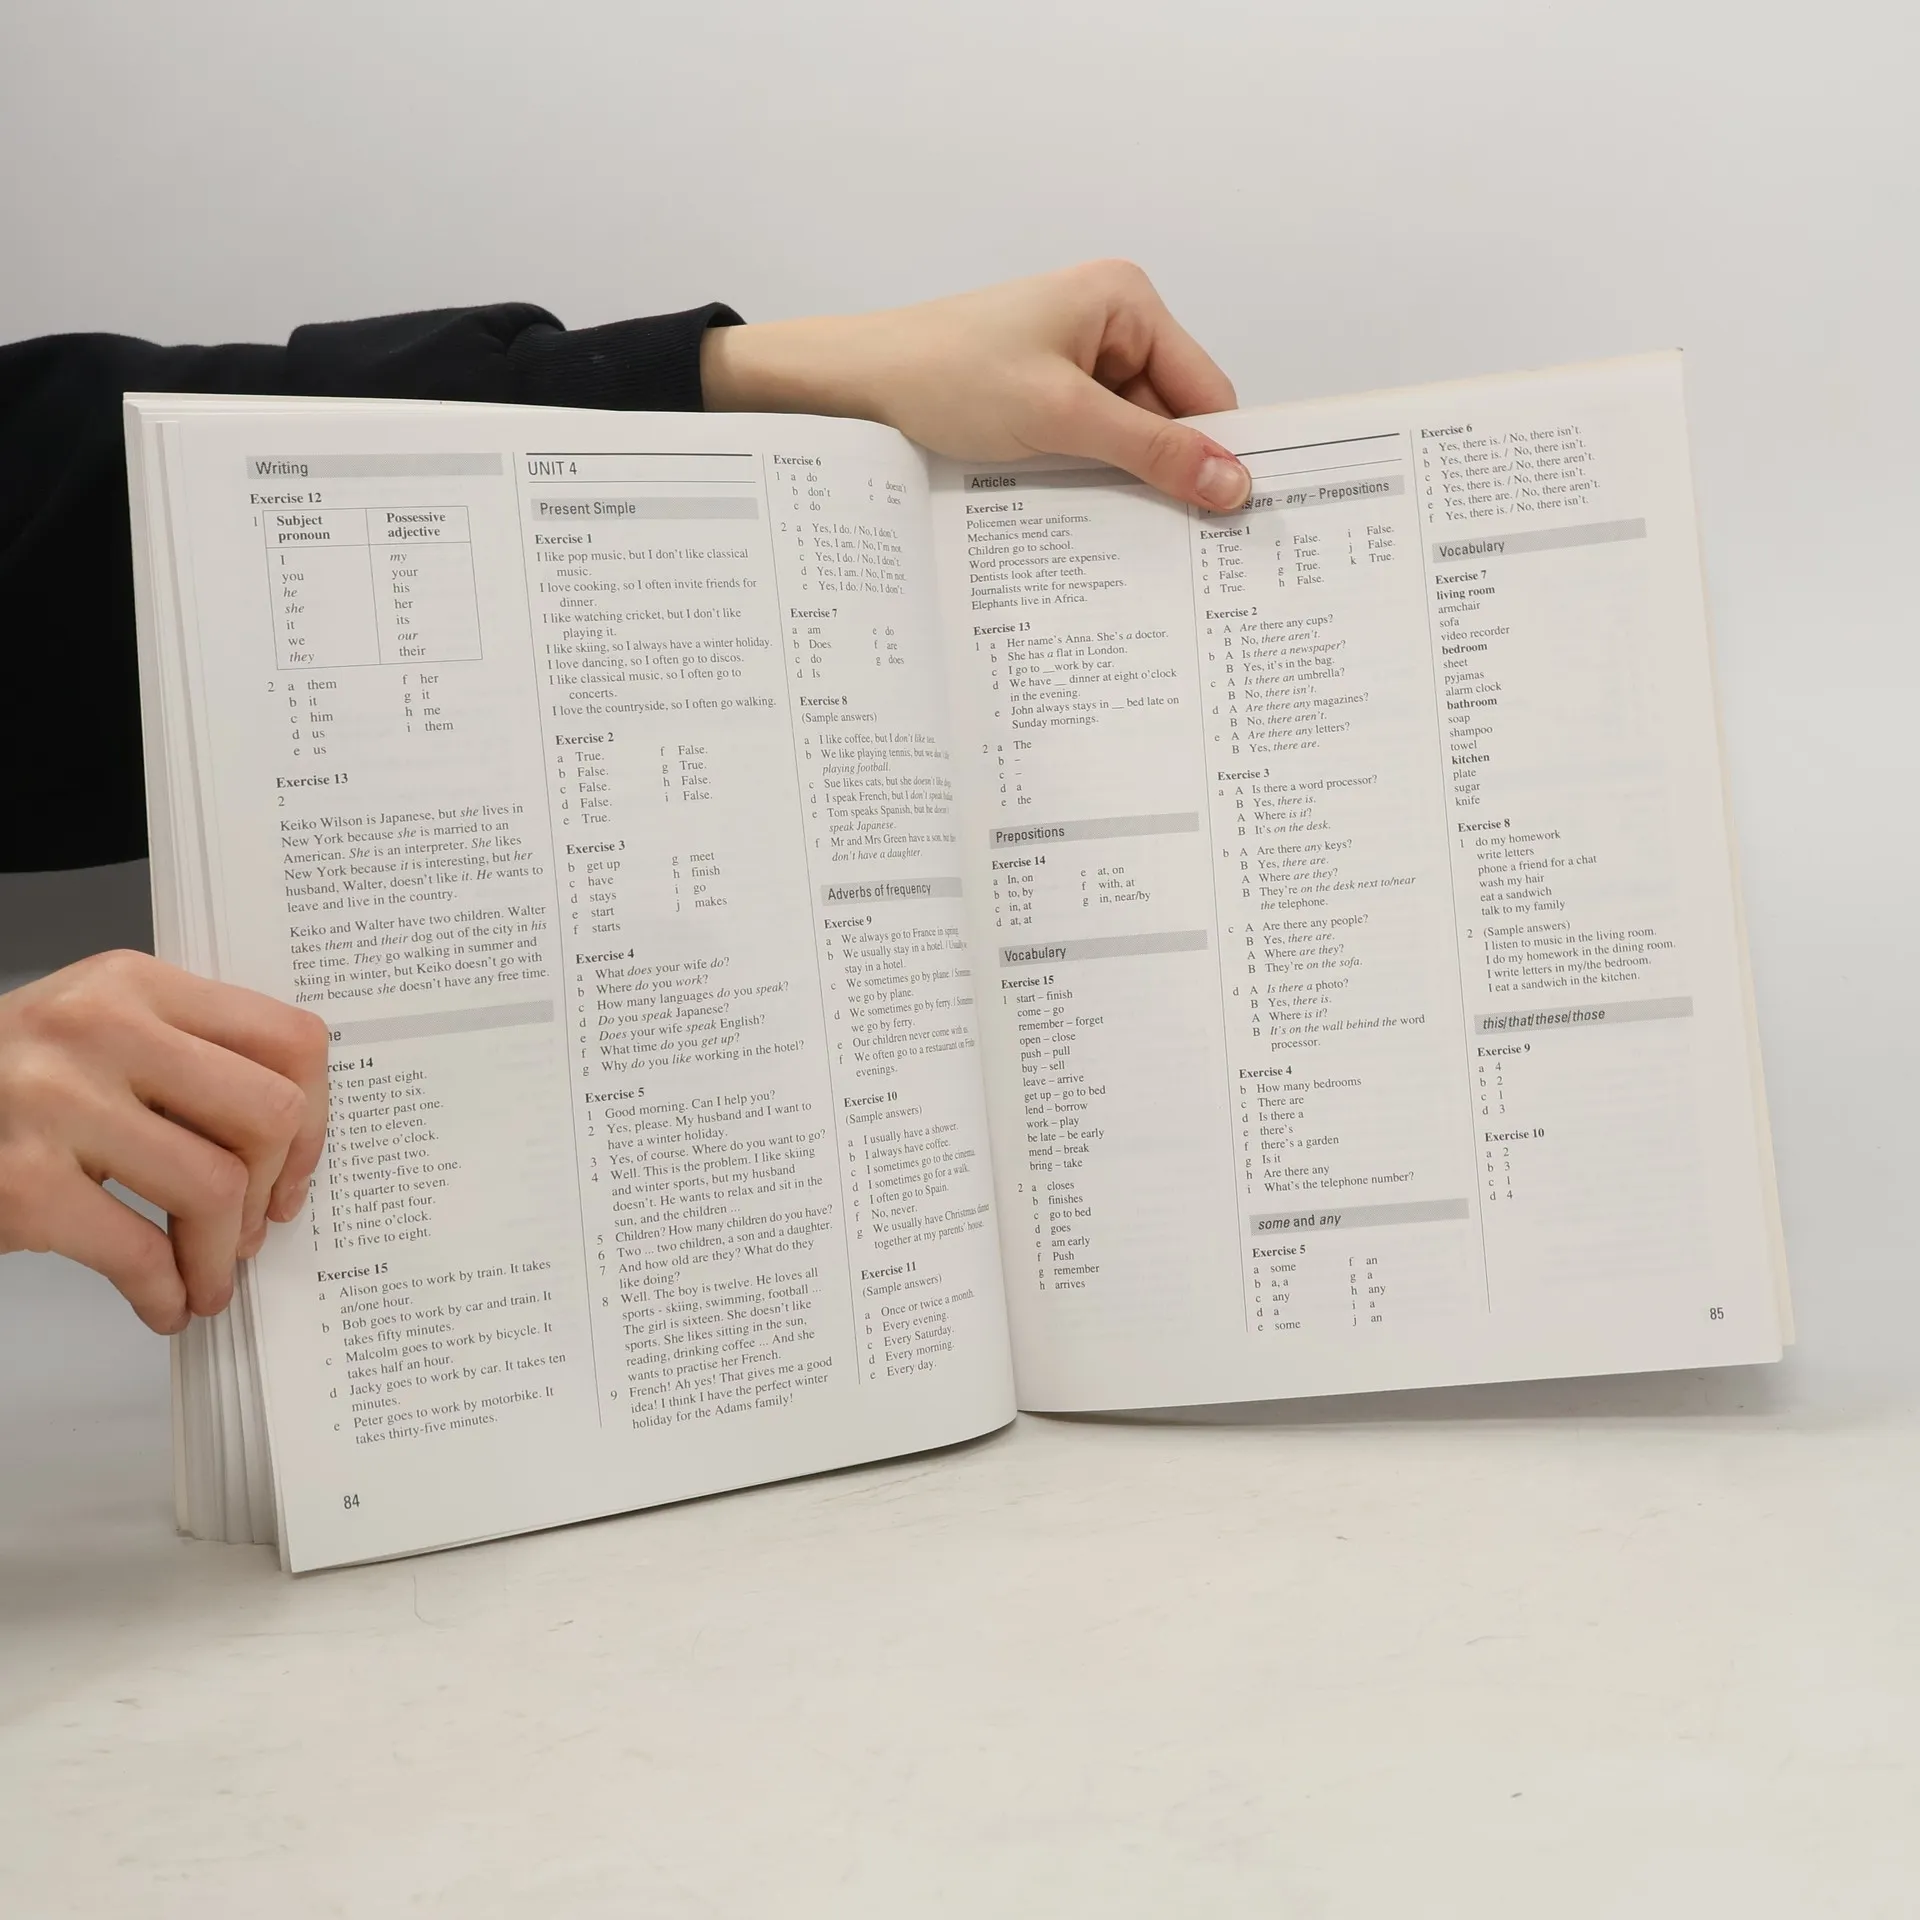 Writing
Exercise 12
1 Subject pronoun Possessive adjective
I my
you your
he his
she her
it its
we our
they their
2 a them f her
b it g it
c him h me
d us i them
e us
Exercise 13
2
Keiko Wilson is Japanese, but she lives in
New York because she is married to an
American. She is an interpreter. She likes
New York because it is interesting, but her
husband, Walter, doesn't like it. He wants to
leave and live in the country.
Keiko and Walter have two children. Walter
takes them and their dog out of the city in his
free time. They go walking in summer and
skiing in winter, but Keiko doesn't go with
them because she doesn't have any free time.
14
ten past eight.
twenty to six.
quarter past one.
It's ten to eleven.
It's twelve o'clock.
It's five past two.
h It's twenty-five to one.
i It's quarter to seven.
j It's half past four.
k It's nine o'clock.
l It's five to eight.
Exercise 15
a Alison goes to work by train. It takes
an/one hour.
b Bob goes to work by car and train. It
takes fifty minutes.
c Malcolm goes to work by bicycle. It
takes half an hour.
d Jacky goes to work by car. It takes ten
minutes.
e Peter goes to work by motorbike. It
takes thirty-five minutes.
84
UNIT 4
Present Simple
Exercise 1
I like pop music, but I don't like classical
music.
I love cooking, so I often invite friends for
dinner.
I like watching cricket, but I don't like
playing it.
I like skiing, so I always have a winter holiday.
I love dancing, so I often go to discos.
I like classical music, so I often go to
concerts.
I love the countryside, so I often go walking.
Exercise 2
a True. f False.
b False. g True.
c False. h False.
d False. i False.
e True.
Exercise 3
b get up g meet
c have h finish
d stays i go
e start j makes
f starts
Exercise 4
a What does your wife do?
b Where do you work?
c How many languages do you speak?
d Do you speak Japanese?
e Does your wife speak English?
f What time do you get up?
g Why do you like working in the hotel?
Exercise 5
1 Good morning. Can I help you?
2 Yes, please. My husband and I want to
have a winter holiday.
3 Yes, of course. Where do you want to go?
4 Well. This is the problem. I like skiing
and winter sports, but my husband
doesn't. He wants to relax and sit in the
sun, and the children ...
5 Children? How many children do you have?
6 Two ... two children, a son and a daughter.
7 And how old are they? What do they
like doing?
8 Well. The boy is twelve. He loves all
sports - skiing, swimming, football ...
The girl is sixteen. She doesn't like
sports. She likes sitting in the sun,
reading, drinking coffee ... And she
wants to practise her French.
9 French! Ah yes! That gives me a good
idea! I think I have the perfect winter
holiday for the Adams family!
Exercise 6
1 a do d doesn't
b don't e does
c do
2 a Yes, I do. / No, I don't.
b Yes, I am. / No, I'm not.
c Yes, I do. / No, I don't.
d Yes, I am. / No, I'm not.
e Yes, I do. / No, I don't.
Exercise 7
a am e do
b Does f are
c do g does
d Is
Exercise 8
(Sample answers)
a I like coffee, but I don't like tea.
b We like playing tennis, but we don't like
playing football.
c Sue likes cats, but she doesn't like dogs
d I speak French, but I don't speak
e Tom speaks Spanish, but he doesn't
speak Japanese.
f Mr and Mrs Green have a son, but they
don't have a daughter.
Adverbs of frequency
Exercise 9
a We always go to France in spring.
b We usually stay in a hotel. / Usually
stay in a hotel.
c We sometimes go by plane. /
we go by plane.
d We sometimes go by ferry. /
we go by ferry.
e Our children never come with us.
f We often go to a restaurant on
evenings.
Exercise 10
(Sample answers)
a I usually have a shower.
b I always have coffee.
c I sometimes go to the cinema.
d I sometimes go for a walk.
e I often go to Spain.
f No, never.
g We usually have Christmas
together at my parents' house.
Exercise 11
(Sample answers)
a Once or twice a month.
b Every evening.
c Every Saturday.
d Every morning.
e Every day.
Articles
Exercise 12
Policemen wear uniforms.
Mechanics mend cars.
Children go to school.
Word processors are expensive.
Dentists look after teeth.
Journalists write for newspapers.
Elephants live in Africa.
Exercise 13
1 a Her name's Anna. She's a doctor.
b She has a flat in London.
c I go to __ work by car.
d We have __ dinner at eight o'clock
in the evening.
e John always stays in __ bed late on
Sunday mornings.
2 a The
b –
c –
d a
e the
Prepositions
Exercise 14
a In, on e at, on
b to, by f with, at
c in, at g in, near/by
d at, at
Vocabulary
Exercise 15
1 start – finish
come – go
remember – forget
open – close
push – pull
buy – sell
leave – arrive
get up – go to bed
lend – borrow
work – play
be late – be early
mend – break
bring – take
2 a closes
b finishes
c go to bed
d goes
e am early
f Push
g remember
h arrives
is/are – any – Prepositions
Exercise 1
a True. e False. i False.
b True. f True. j False.
c False. g True. k True.
d True. h False.
Exercise 2
a A Are there any cups?
B No, there aren't.
b A Is there a newspaper?
B Yes, it's in the bag.
c A Is there an umbrella?
B No, there isn't.
d A Are there any magazines?
B No, there aren't.
e A Are there any letters?
B Yes, there are.
Exercise 3
a A Is there a word processor?
B Yes, there is.
A Where is it?
B It's on the desk.
b A Are there any keys?
B Yes, there are.
A Where are they?
B They're on the desk next to/near
the telephone.
c A Are there any people?
B Yes, there are.
A Where are they?
B They're on the sofa.
d A Is there a photo?
B Yes, there is.
A Where is it?
B It's on the wall behind the word
processor.
Exercise 4
b How many bedrooms
c There are
d Is there a
e there's
f there's a garden
g Is it
h Are there any
i What's the telephone number?
some and any
Exercise 5
a some f an
b a, a g a
c any h any
d a i a
e some j an
Exercise 6
a Yes, there is. / No, there isn't.
b Yes, there is. / No, there isn't.
c Yes, there are./ No, there aren't.
d Yes, there is. / No, there isn't.
e Yes, there are. / No, there aren't.
f Yes, there is. / No, there isn't.
Vocabulary
Exercise 7
living room
armchair
sofa
video recorder
bedroom
sheet
pyjamas
alarm clock
bathroom
soap
shampoo
towel
kitchen
plate
sugar
knife
Exercise 8
1 do my homework
write letters
phone a friend for a chat
wash my hair
eat a sandwich
talk to my family
2 (Sample answers)
I listen to music in the living room.
I do my homework in the dining room.
I write letters in my/the bedroom.
I eat a sandwich in the kitchen.
this/that/these/those
Exercise 9
a 4
b 2
c 1
d 3
Exercise 10
a 2
b 3
c 1
d 4
85